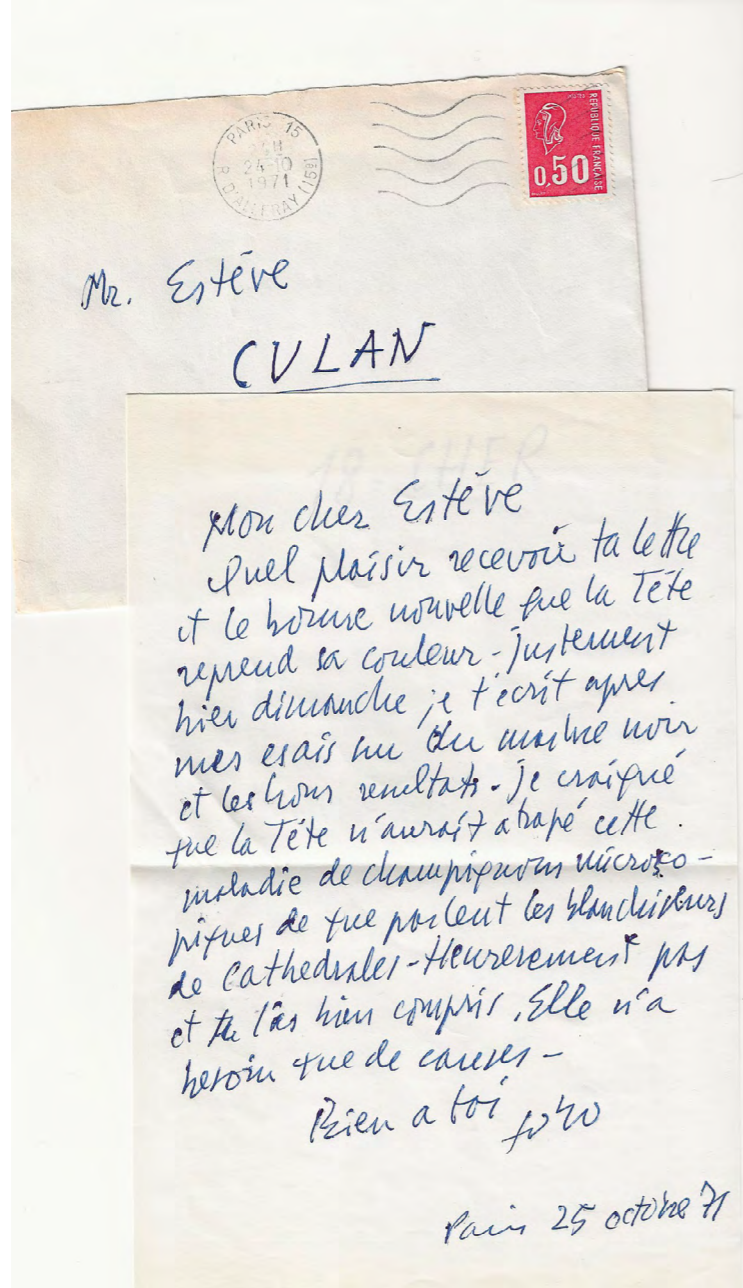 PARIS 15
24-10
1971
R. D'ALLERAY (15e)
REPUBLIQUE FRANCAISE
0,50
Mr. Estève
CULAN
18. CHER
Mon cher Estève
Quel plaisir recevoir ta lettre
et le bonne nouvelle que la Tête
reprend sa couleur - justement
hier dimanche je t'écrit apres
mes esais sur du marbre noir
et les bons resultats - je craigné
que la Tête n'aurait atrapé cette
maladie de champignons microsco-
piques de que parlent les blanchisseurs
de Cathedrales - Heureusement pas
et tu l'as bien compris. Elle n'a
besoin que de careses -
Bien a toi
Paris 25 octobre 71